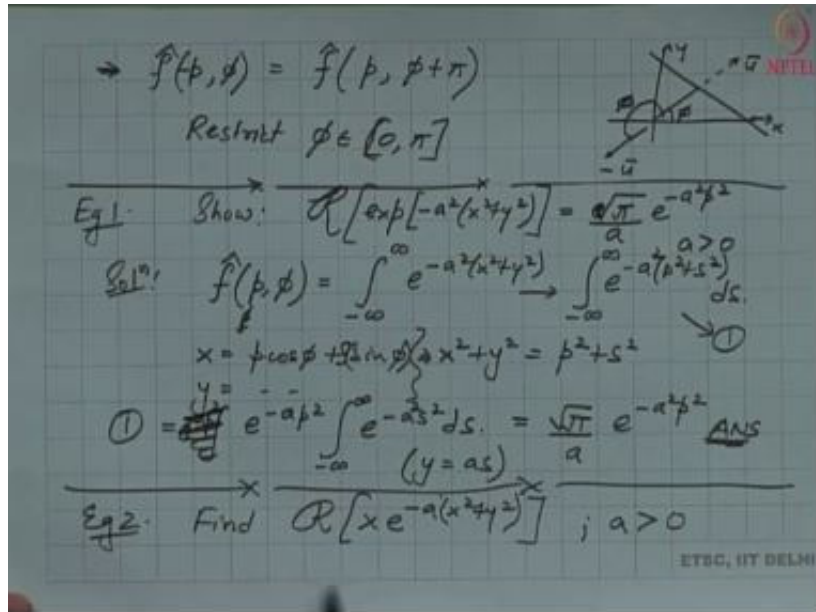 → f̂(-p, φ) = f̂(p, φ+π)
Restrict φ ∈ [0, π]
y
ū
x
φ
φ
-ū
NPTEL
Eg1. Show: R[exp[-a²(x²+y²)] = √π/a e^{-a²p²}
a>0
Solⁿ: f̂(p, φ) = ∫_{-∞}^{∞} e^{-a²(x²+y²)} → ∫_{-∞}^{∞} e^{-a²(p²+s²)} ds.
→ ①
x = p cosφ + s sinφ → x²+y² = p²+s²
y = - -
① = e^{-ap²} ∫_{-∞}^{∞} e^{-a²s²} ds. = √π/a e^{-a²p²} ANS
(y = as)
Eg2. Find R[x e^{-a(x²+y²)}] ; a>0
ETSC, IIT DELHI